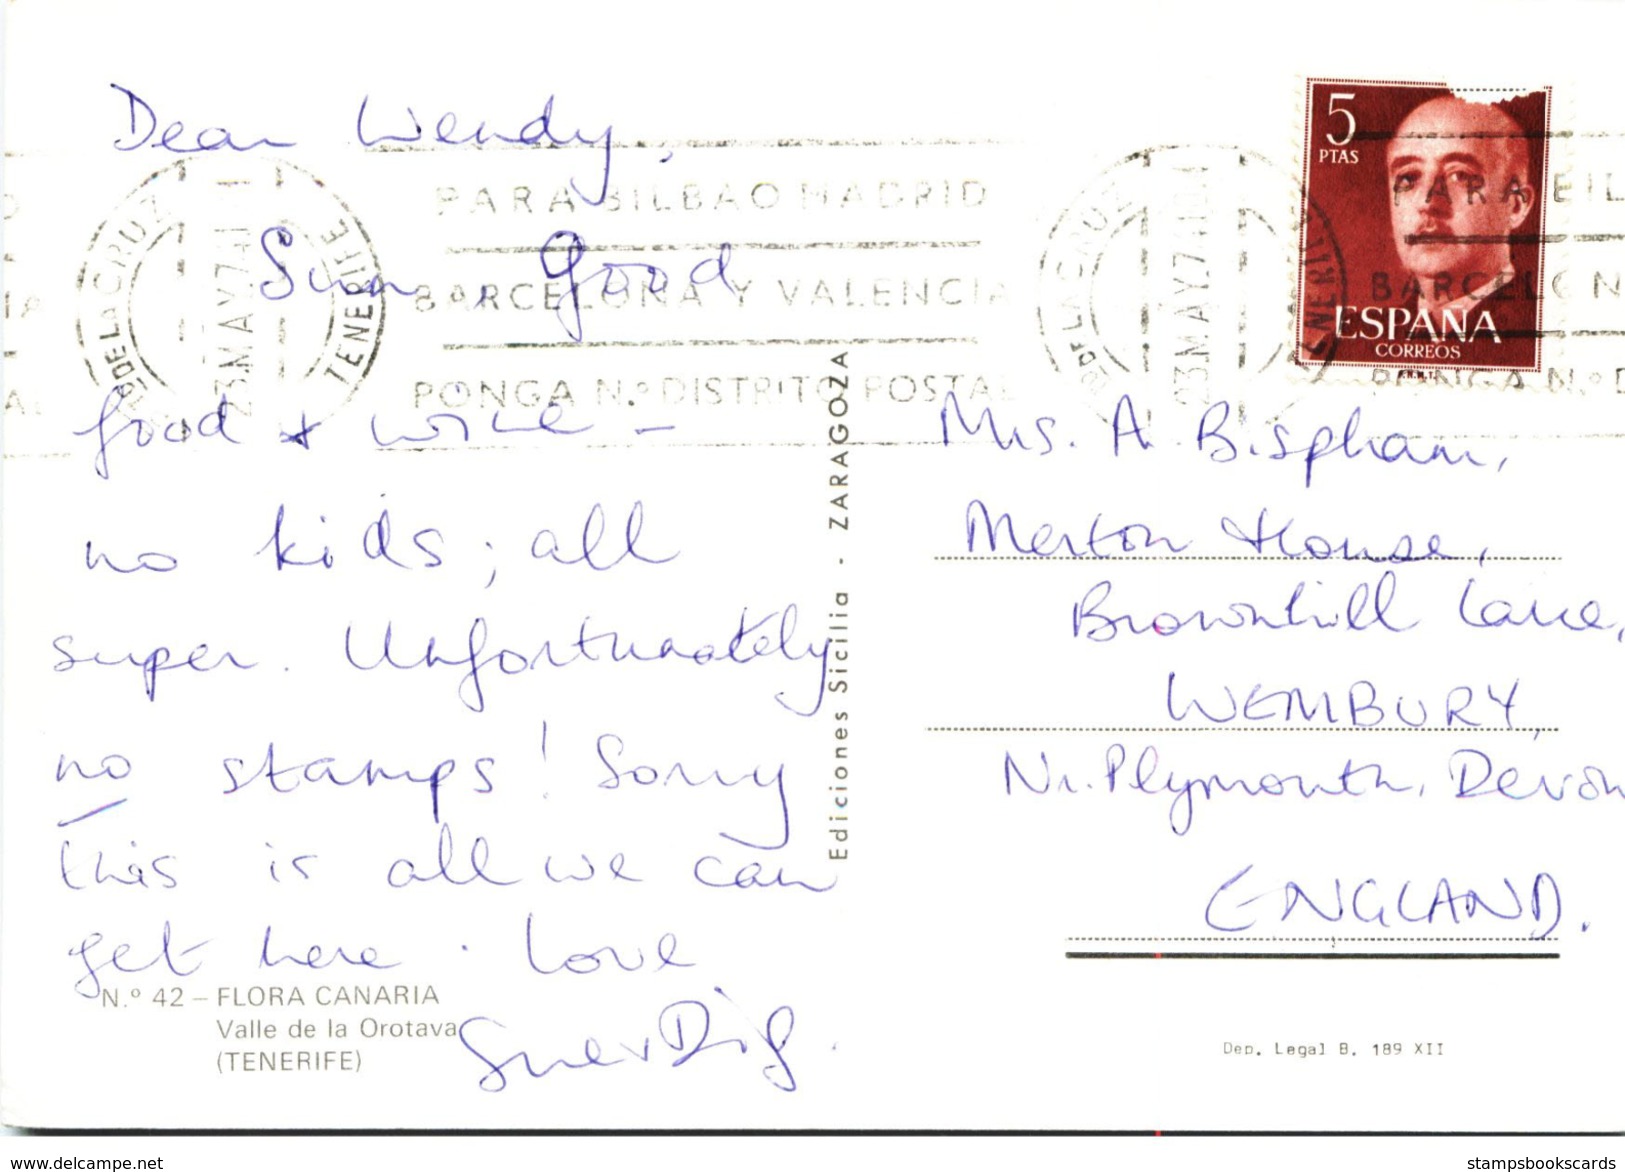 Dear Wendy,
Sun, good
food + wine –
no kids; all
super. Unfortunately
no stamps! Sorry
this is all we can
get here. Love
Sue + Dig.
N.º 42 – FLORA CANARIA
Valle de la Orotava
(TENERIFE)
Ediciones Sicilia - ZARAGOZA
PARA BILBAO MADRID
BARCELONA Y VALENCIA
PONGA N.º DISTRITO POSTAL
DE LA CRUZ
TENERIFE
23 MAY. 74
5
PTAS
ESPAÑA
CORREOS
PARA BIL
BARCELON
PONGA N.º D
DE LA CRUZ
TENERIFE
23 MAY. 74
Mrs. A. Bispham,
Merton House,
Brownhill Lane,
WEMBURY,
Nr. Plymouth, Devon
ENGLAND.
Dep. Legal B. 189 XII
www.delcampe.net
stampsbookscards